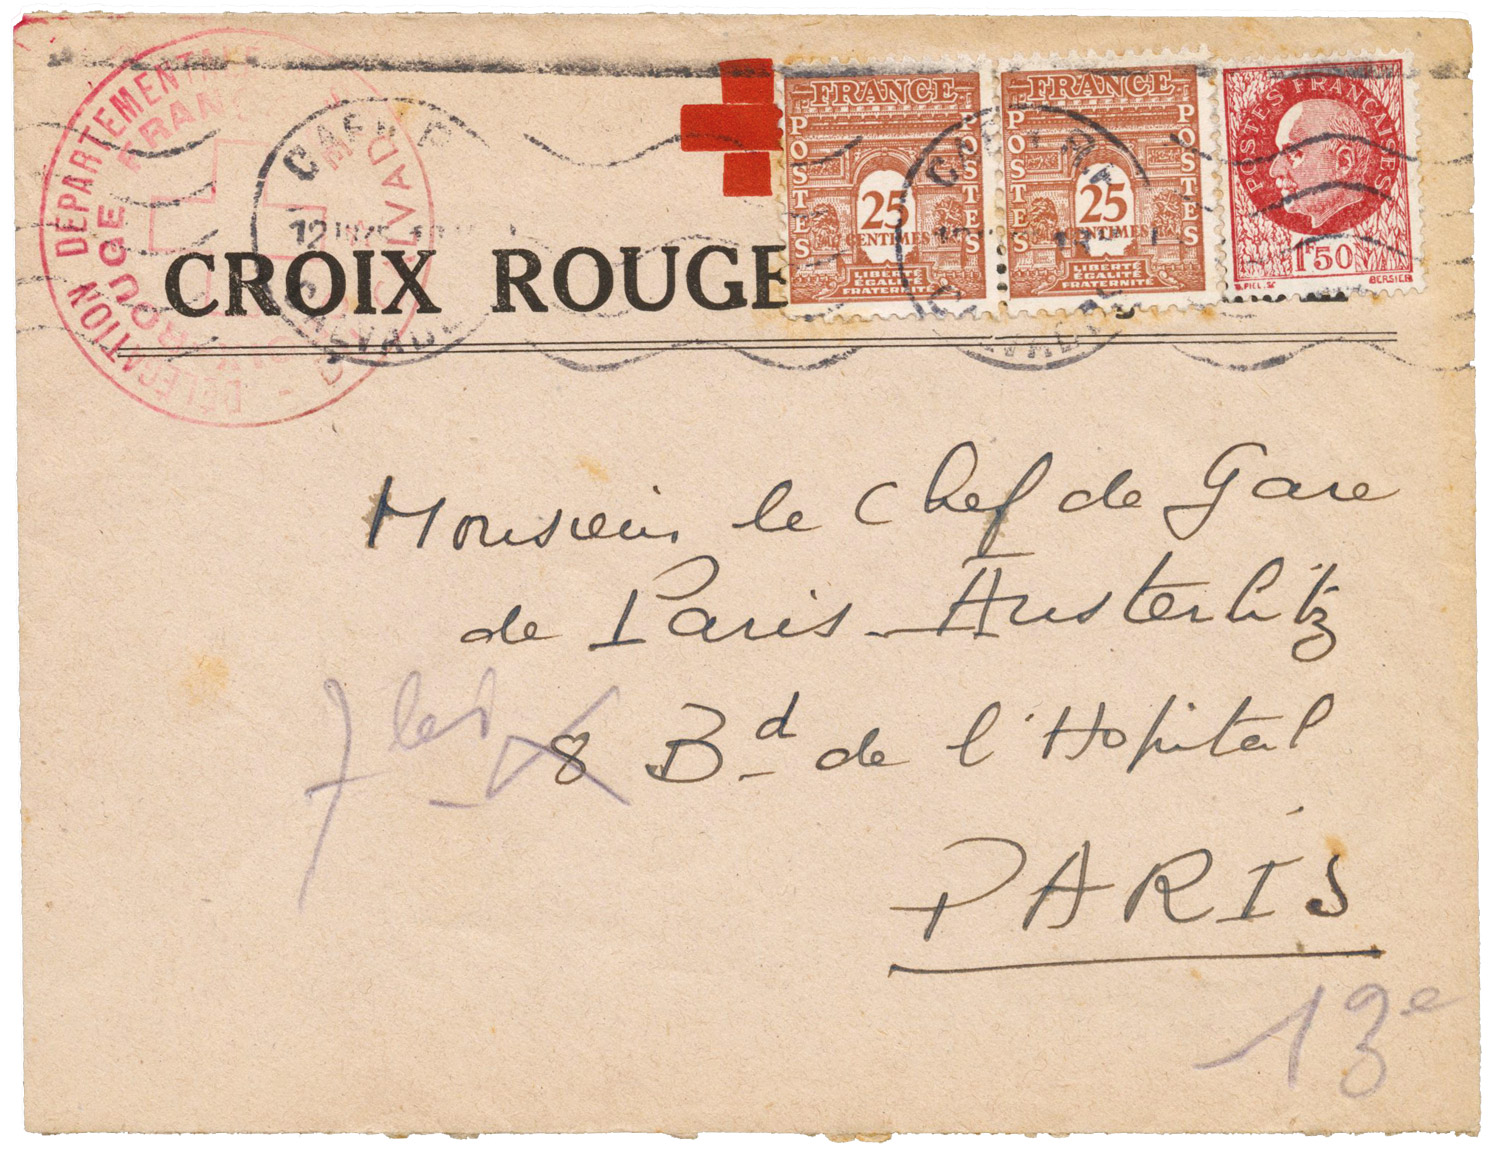 DÉLÉGATION DÉPARTEMENTALE
CALVADOS
ROUGE FRANÇAISE
CAEN R.P.
12
CALVADOS
CROIX ROUGE
FRANCE
POSTES
POSTES
25
CENTIMES
LIBERTÉ
ÉGALITÉ
FRATERNITÉ
FRANCE
POSTES
POSTES
25
CENTIMES
LIBERTÉ
ÉGALITÉ
FRATERNITÉ
CAEN R.P.
POSTES FRANÇAISES
1F50
BERSIER
Monsieur le Chef de Gare
de Paris-Austerlitz
7 8 Bd de l'Hopital
PARIS
13e